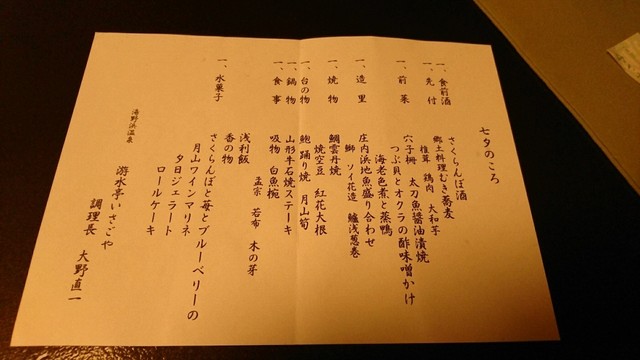 七夕のころ
一、食前酒
さくらんぼ酒
一、先付
郷土料理むき蕎麦
椎茸 鶏肉 大和芋
一、前菜
穴子柵 太刀魚醤油漬焼
つぶ貝とオクラの酢味噌かけ
海老色煮と蒸鴨
一、造里
庄内浜地魚盛り合わせ
鰤 ソイ花造 鱸浅葱巻
一、焼物
鯛雲丹焼
焼空豆 紅花大根
一、台の物
鮑踊り焼 月山筍
一、鍋物
山形牛石焼ステーキ
一、食事
吸物 白魚椀
孟宗 若布 木の芽
浅利飯
香の物
一、水菓子
さくらんぼと苺とブルーベリーの
月山ワインマリネ
夕日ジェラート
ロールケーキ
湯野浜温泉
游水亭いさごや
調理長 大野直一